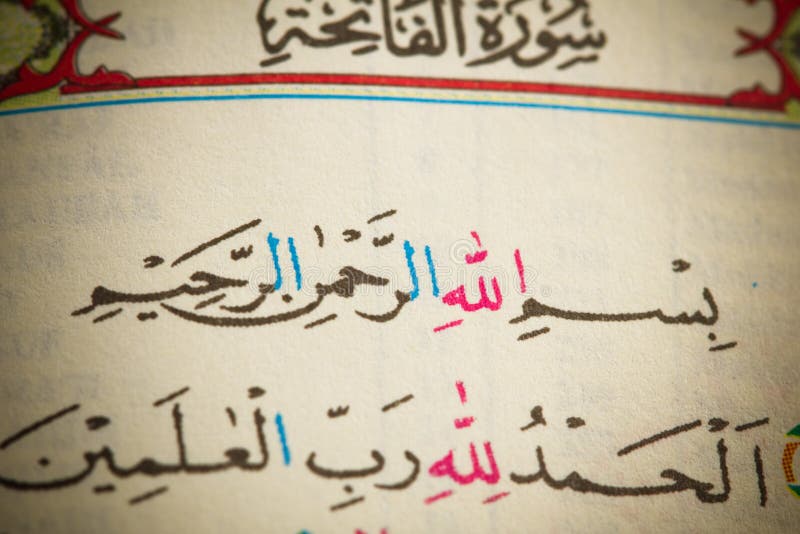 سُورَةُ الْفَاتِحَةِ
بِسْمِ اللّٰهِ الرَّحْمٰنِ الرَّحِيْمِ
اَلْحَمْدُ لِلّٰهِ رَبِّ الْعٰلَمِيْنَ